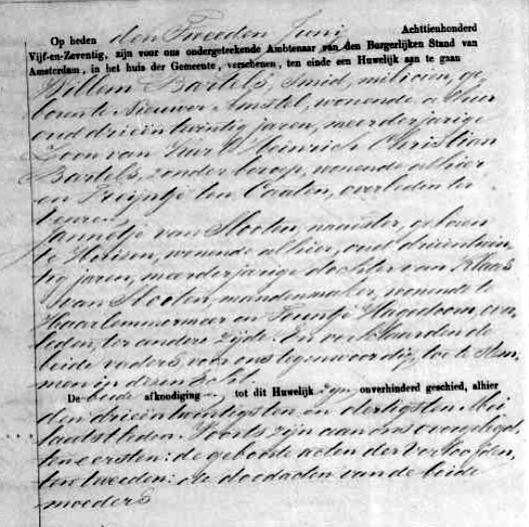 Op heden den Tweeden Juni Achttienhonderd
Vijf-en-Zeventig, zijn voor ons ondergeteekende Ambtenaar van den Burgerlijken Stand van
Amsterdam, in het huis der Gemeente, verschenen, ten einde een Huwelijk aan te gaan
Willem Bartels, smid, milicien, ge
boren te Nieuwer Amstel, wonende alhier
oud drieëntwintig jaren, meerderjarige
Zoon van Heinrich Christian
Bartels, zonder beroep, wonende alhier
en Treijntje ten Caaten, overleden ter
eenre
Jannetje van Slooten, naaister, geboren
te Huisen, wonende alhier, oud drieëntwin
tig jaren, meerderjarige dochter van Klaas
van Slooten, mandenmaker, wonende te
Haarlemmermeer en Hagedoorn, over
leden, ter andere zijde. En verklaarden de
beide vaders voor ons tegenwoordig, toe te stem
men in dezen Echt.
De beide afkondiging en tot dit Huwelijk zijn onverhinderd geschied, alhier
den drieëntwintigsten en dertigsten Mei
laatstleden. Voorts zijn aan ons overgelegd,
ten eersten: de geboorte acten der Verloofden,
ten tweeden: de doodacten van de beide
moeders